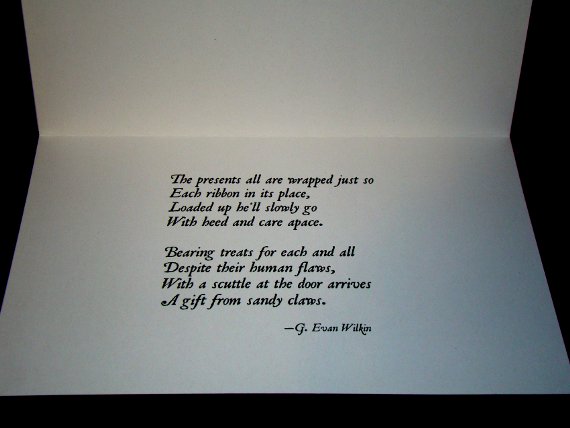 The presents all are wrapped just so
Each ribbon in its place,
Loaded up he'll slowly go
With heed and care apace.
Bearing treats for each and all
Despite their human flaws,
With a scuttle at the door arrives
A gift from sandy claws.
—G. Evan Wilkin